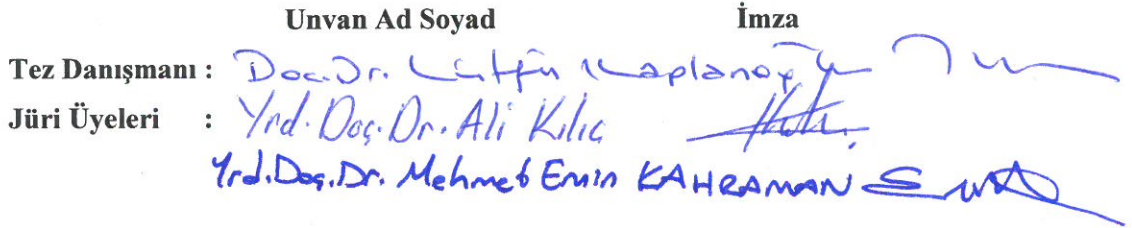 Unvan Ad Soyad İmza
Tez Danışmanı : Doç.Dr. Lütfü Kaplanoğlu
Jüri Üyeleri : Yrd.Doç.Dr. Ali Kılıç
Yrd.Doç.Dr. Mehmet Emin KAHRAMAN